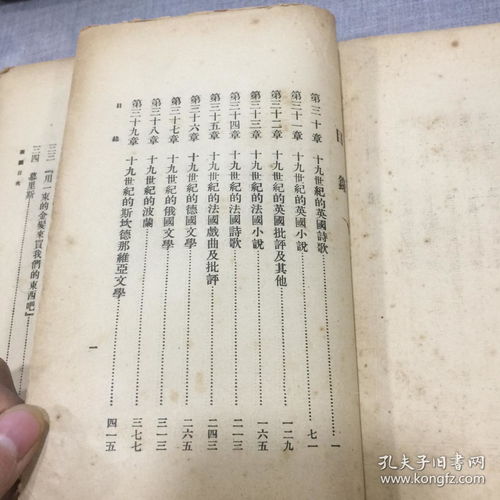 目錄
第三十章 十九世紀的英國詩歌 一
第三十一章 十九世紀的英國小說 七一
第三十二章 十九世紀的英國批評及其他 一二九
第三十三章 十九世紀的法國小說 一六五
第三十四章 十九世紀的法國詩歌 二一三
第三十五章 十九世紀的法國戲曲及批評 二四三
第三十六章 十九世紀的德國文學 二六五
第三十七章 十九世紀的俄國文學 三一三
第三十八章 十九世紀的波蘭 三七七
第三十九章 十九世紀的斯坎德那維亞文學 四一五
目錄 一
三三 『用一束的金髮來買我們的東西吧』
三四 慕里斯
插圖目次
孔夫子旧书网
www.kongfz.com